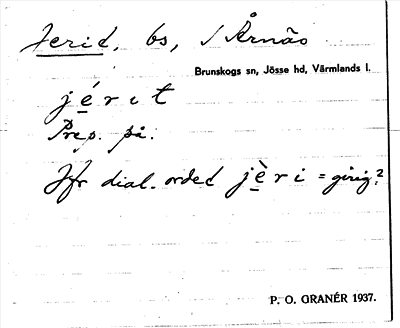 Jerid, bs, / Årnäs
Brunskogs sn, Jösse hd, Värmlands l.
jérit
Prep. på.
Jfr dial. ordet jèri = girig?
P. O. GRANÉR 1937.